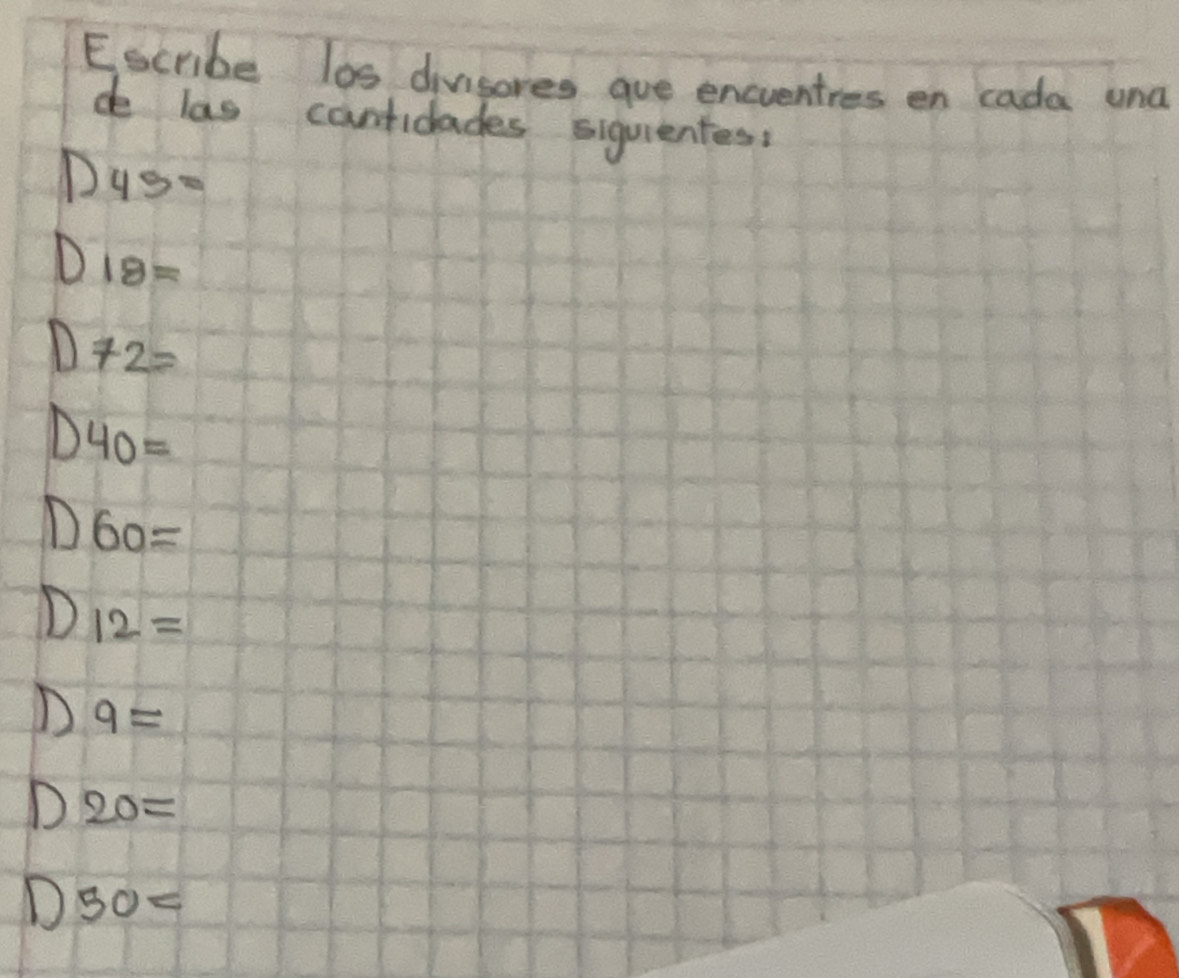 Escribe los divisores que encuentres en cada una
de las cantidades siguientes:
D45=
D18=
D72=
D40=
D60=
D12=
D9=
D20=
D50=